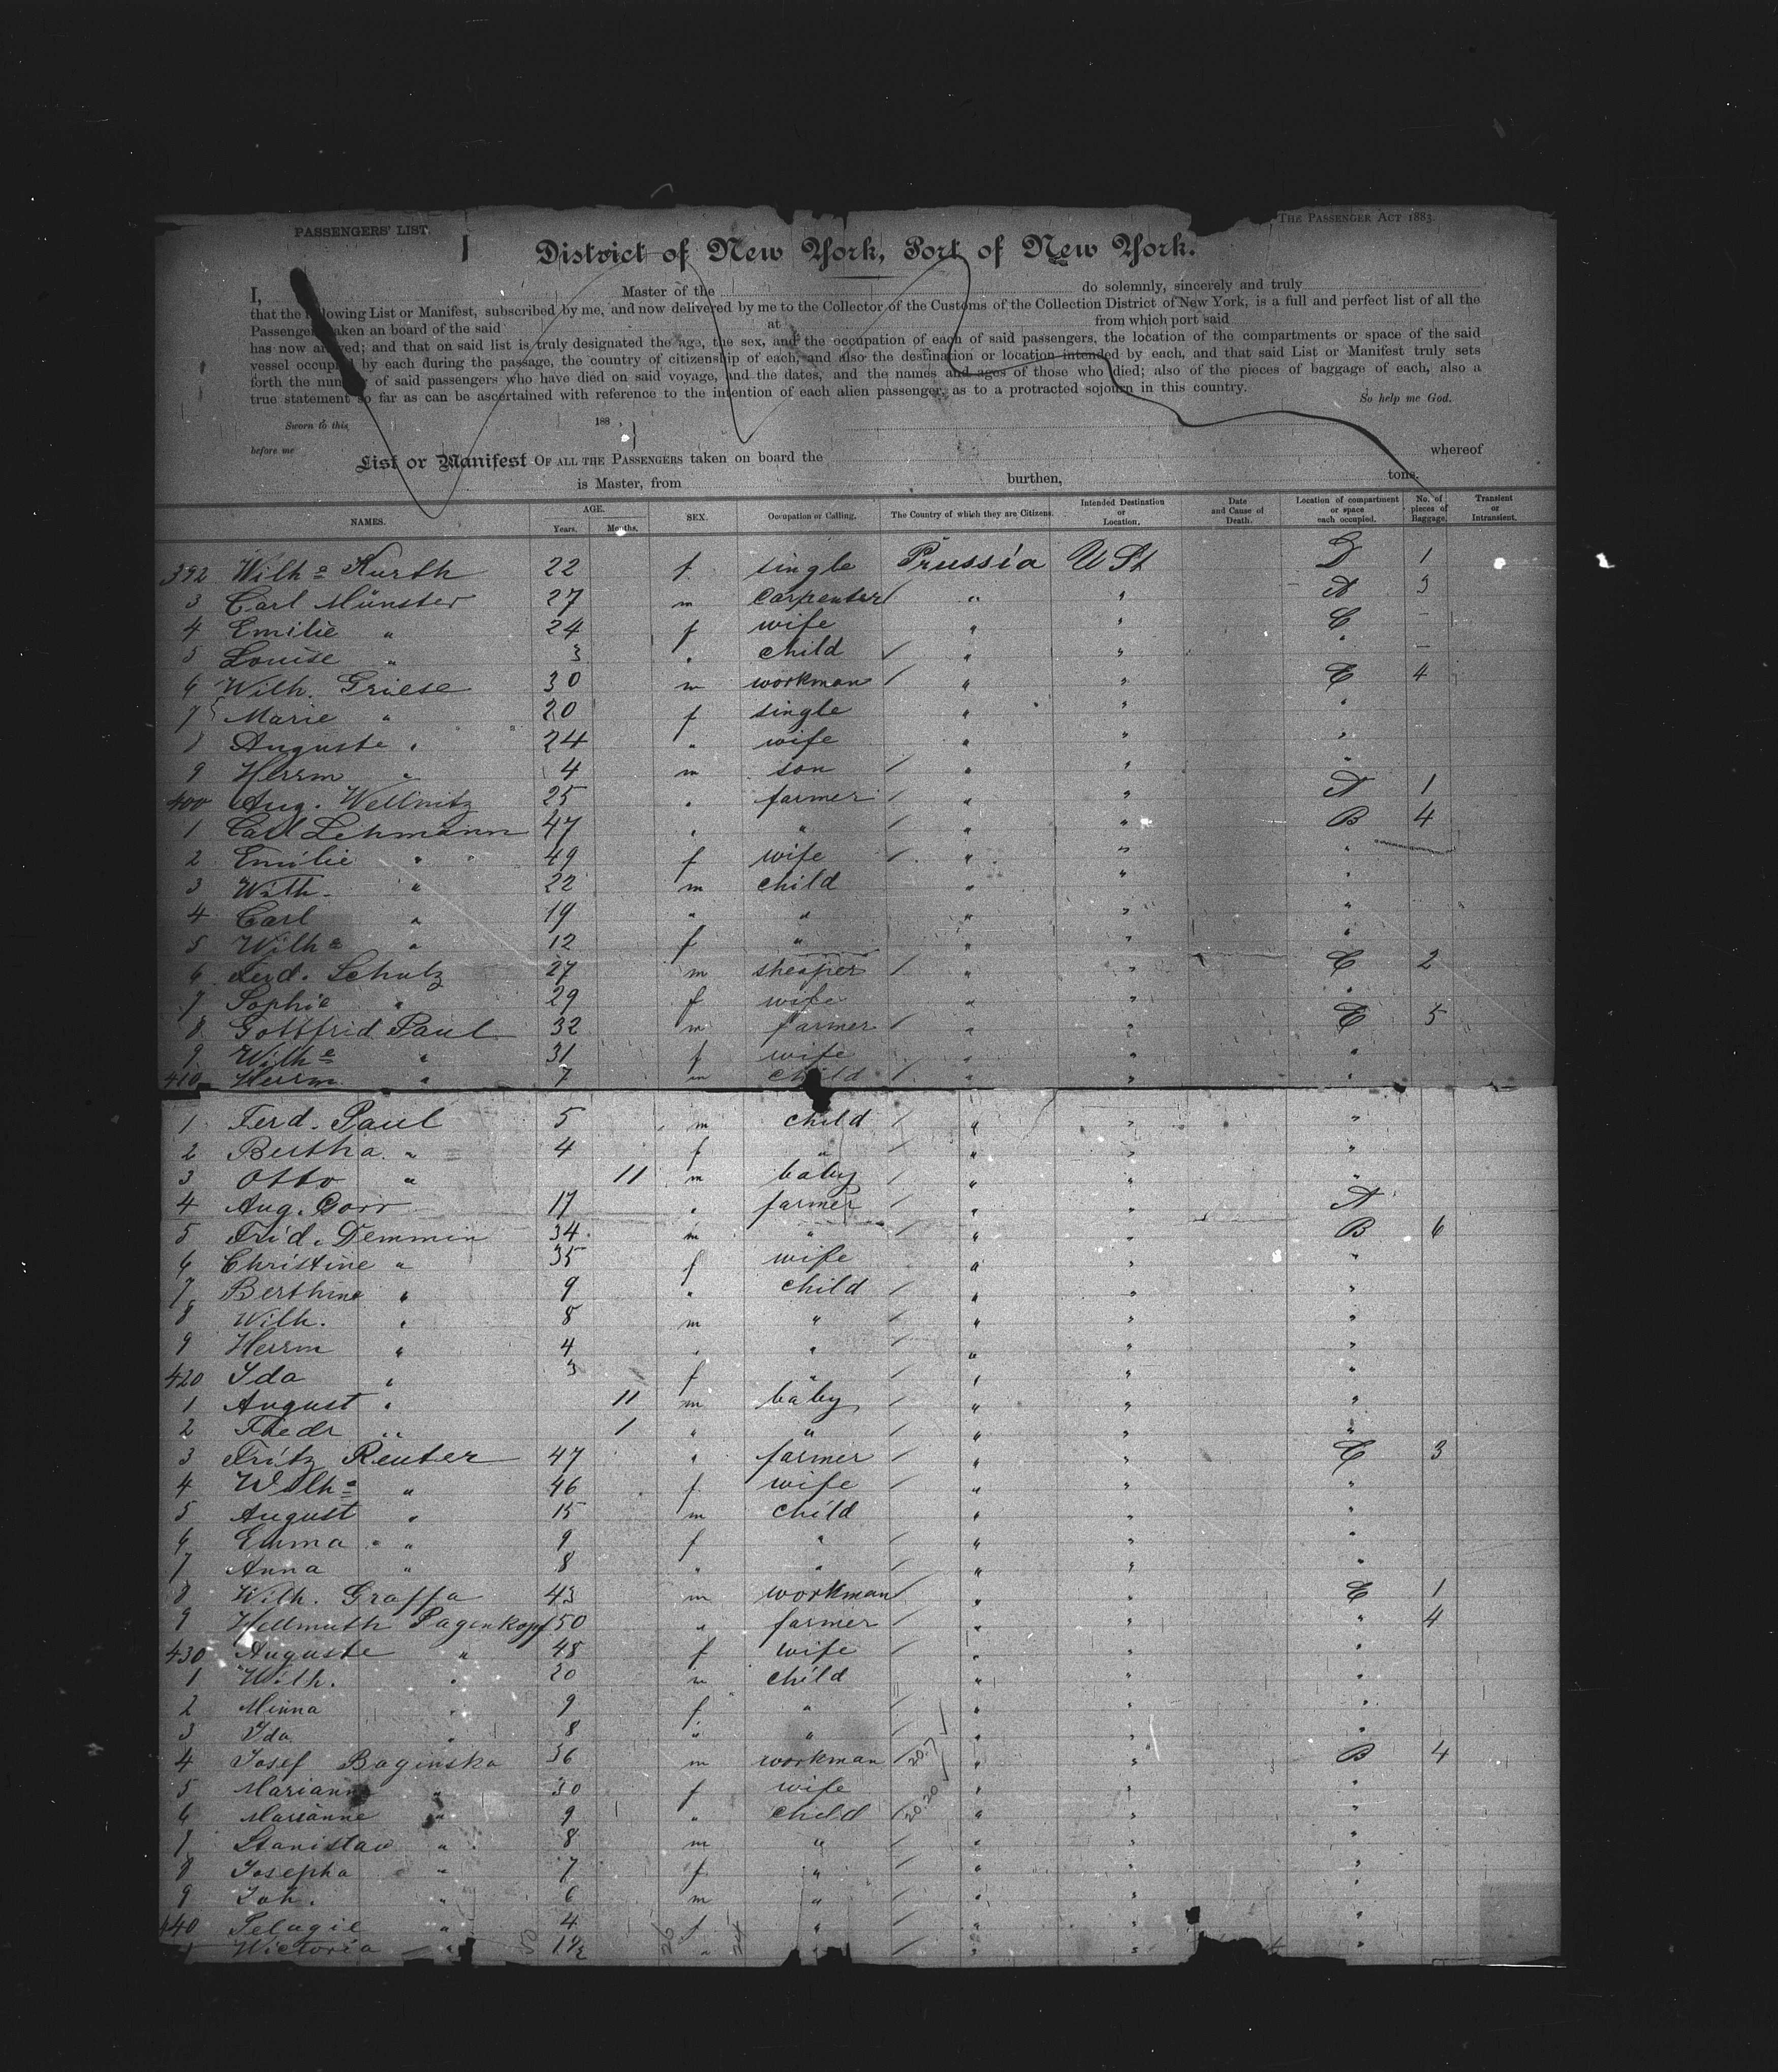 PASSENGERS' LIST.
THE PASSENGER ACT 1883.
District of New York, Port of New York.
I, Master of the do solemnly, sincerely and truly
that the following List or Manifest, subscribed by me, and now delivered by me to the Collector of the Customs of the Collection District of New York, is a full and perfect list of all the
Passengers taken an board of the said at from which port said
has now arrived; and that on said list is truly designated the age, the sex, and the occupation of each of said passengers, the location of the compartments or space of the said
vessel occupied by each during the passage, the country of citizenship of each, and also the destination or location intended by each, and that said List or Manifest truly sets
forth the number of said passengers who have died on said voyage, and the dates, and the names and ages of those who died; also of the pieces of baggage of each, also a
true statement so far as can be ascertained with reference to the intention of each alien passenger, as to a protracted sojourn in this country. So help me God.
Sworn to this 188 ,
before me whereof
List or Manifest OF ALL THE PASSENGERS taken on board the
is Master, from burthen, tons.
NAMES. AGE. Years. Months. SEX. Occupation or Calling. The Country of which they are Citizens. Intended Destination or Location. Date and Cause of Death. Location of compartment or space each occupied. No. of pieces of Baggage. Transient or Intransient.
392 Wilhe Kurth 22 f single Prussia U St D 1
3 Carl Münster 27 m carpenter " " A 3
4 Emilie " 24 f wife " " C –
5 Louise " 3 " child / " " " –
6 Wilh. Griese 30 m workman / " " C 4
7 Marie " 20 f single " " "
8 Auguste " 24 " wife " " "
9 Herrm " 4 m son / " " "
400 Aug. Wellnitz 25 " farmer / " " A 1
1 Carl Lehmann 47 " " / " " B 4
2 Emilie " 49 f wife / " " "
3 Wilh. " 22 m child " " "
4 Carl " 19 " " " " "
5 Wilhe " 12 f " " " "
6 Ferd. Schulz 27 m sheaper / " " C 2
7 Sophie " 29 f wife " " "
8 Gottfrid Paul 32 m farmer / " " C 5
9 Wilhe " 31 f wife " " "
410 Herrm " 7 m child / " " "
1 Ferd. Paul 5 m child / " " "
2 Bertha " 4 f " / " " "
3 Otto " 11 m baby / " " "
4 Aug. Gorr 17 " farmer / " " A
5 Frid. Demmin 34 m " / " " B 6
6 Christine " 35 f wife " " "
7 Berthine " 9 " child / " " "
8 Wilh. " 8 m " / " " "
9 Herrm " 4 " " / " " "
420 Ida " 3 f " / " " "
1 August " 11 m baby / " " "
2 Friedr " 1 " " / " " "
3 Fritz Reuter 47 " farmer / " " C 3
4 Wilhe " 46 f wife / " " "
5 August " 15 m child " " "
6 Emma " 9 f " / " " "
7 Anna " 8 " " / " " "
8 Wilh. Graffa 43 m workman / " " C 1
9 Hellmuth Pagenkopf 50 " farmer / " " " 4
430 Auguste " 48 f wife / " " "
1 Wilh. " 20 m child " " "
2 Minna " 9 f " / " " "
3 Ida " 8 " " / " " "
4 Josef Baginska 36 m workman / " " B 4
5 Mariann " 30 f wife " " "
6 Marianne " 9 " child / " " "
7 Stanislaw " 8 m " / " " "
8 Josepha " 7 f " / " " "
9 Joh. " 6 m " / " " "
440 Pelagie " 4 f " / " " "
1 Wictoria " 1½ " " / " " "